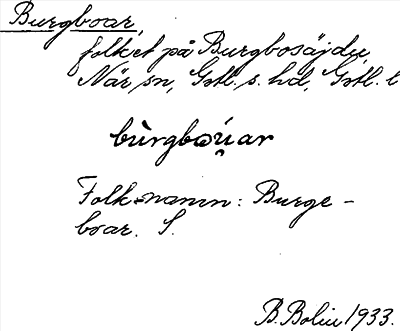 Burgboar,
folket på Burgbosäjdu,
När sn, Gotl. s. hd, Gotl. l
bùrgbωú̯ar
Folksnamn: Burge-
boar. S.
B. Bolin 1933.